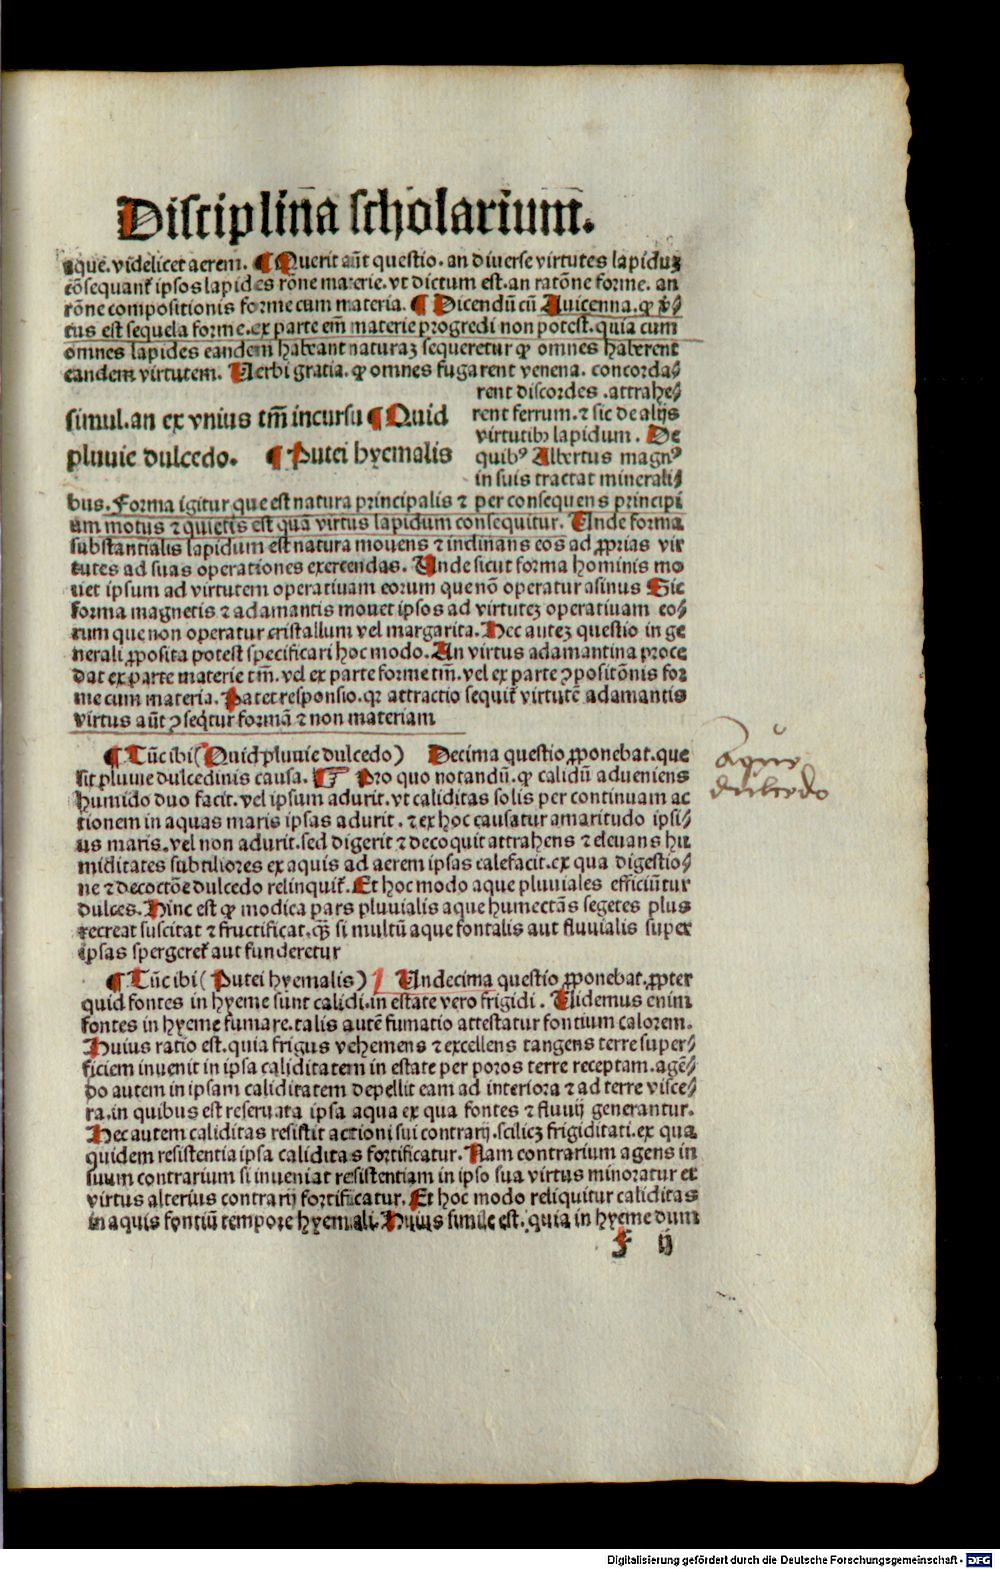 Disciplina̅ scholariu̅m̅.
aque. videlicet aerem. ¶ Querit au̅t questio. an diuerse virtutes lapiduꝫ
co̅sequant᷑ ipsos lapides ro̅ne materie. vt dictum est. an rato̅ne forme. an
ro̅ne compositionis forme cum materia. ¶ Dicendu̅ cu̅ Auicenna. ꝙ v̕⸗
tus est sequela forme. ex parte em̅ materie progredi non potest. quia cum
omnes lapides eandem habeant naturaꝫ sequeretur ꝙ omnes haberent
eandem virtutem. Uerbi gratia. ꝙ omnes fugarent venena. concorda⸗
rent discordes . attrahe⸗
rent ferrum. ⁊ sic de alijs
virtutibꝫ lapidum. De
quibꝰ Albertus magnꝰ
in suis tractat minerali⸗
simul. an ex vnius tm̅ incursu ¶ Quid
pluuie dulcedo. ¶ Putei hyemalis
bus. Forma igitur que est natura principalis ⁊ per consequens principi
um motus ⁊ quietis est qua̅ virtus lapidum consequitur. Unde forma
substantialis lapidum est natura mouens ⁊ inclinans eos ad ꝓprias vir
tutes ad suas operationes exercendas. Unde sicut forma hominis mo
uet ipsum ad virtutem operatiuam eorum que no̅ operatur asinus Sic
forma magnetis ⁊ adamantis mouet ipsos ad virtuteꝫ operatiuam eo⸗
rum que non operatur cristallum vel margarita. Hec auteꝫ questio in ge
nerali ꝓposita potest specificari hoc modo. An virtus adamantina proce
dat ex parte materie tm̅. vel ex parte forme tm̅. vel ex parte ꝯposito̅nis for
me cum materia. Patet responsio. ꝙ attractio sequit᷑ virtute̅ adamantis
virtus au̅t ꝯseq̇tur forma̅ ⁊ non materiam
¶ Tu̅c ibi (Quid pluuie dulcedo) Decima questio ꝓponebat. que
sit pluuie dulcedinis causa. ☞ Pro quo notandu̅. ꝙ calidu̅ adueniens
humido duo facit. vel ipsum adurit. vt caliditas solis per continuam ac
tionem in aquas maris ipsas adurit . ⁊ ex hoc causatur amaritudo ipsi⸗
us maris. vel non adurit. sed digerit ⁊ decoquit attrahens ⁊ eleuans hu
miditates subtiliores ex aquis ad aerem ipsas calefacit. ex qua digestio⸗
ne ⁊ decocto̅e dulcedo relinquit᷑. Et hoc modo aque pluuiales efficiu̅tur
dulces. Hinc est ꝙ modica pars pluuialis aque humecta̅s segetes plus
recreat suscitat ⁊ fructificat. qꝫ̅ si multu̅ aque fontalis aut fluuialis super
ipsas spergeret᷑ aut funderetur
¶ Tu̅c ibi (Putei hyemalis) Undecima questio ꝓponebat. ꝓpter
quid fontes in hyeme sunt calidi. in estate vero frigidi . Uidemus enim
fontes in hyeme fumare. talis aute̅ fumatio attestatur fontium calorem.
Huius ratio est. quia frigus vehemens ⁊ excellens tangens terre super⸗
ficiem inuenit in ipsa caliditatem in estate per poros terre receptam. age̅⸗
do autem in ipsam caliditatem depellit eam ad interiora ⁊ ad terre visce⸗
ra. in quibus est reseruata ipsa aqua ex qua fontes ⁊ fluuij generantur.
Hec autem caliditas resistit actioni sui contrarij. scilicꝫ frigiditati. ex qua
quidem resistentia ipsa caliditas fortificatur. Nam contrarium agens in
suum contrarium si inueniat resistentiam in ipso sua virtus minoratur et
virtus alterius contrarij fortificatur. Et hoc modo reliquitur caliditas
in aquis fontiu̅ tempore hyemali. Huius simile est. quia in hyeme dum
F ij
Aque
dulcedo
Digitalisierung gefördert durch die Deutsche Forschungsgemeinschaft - DFG